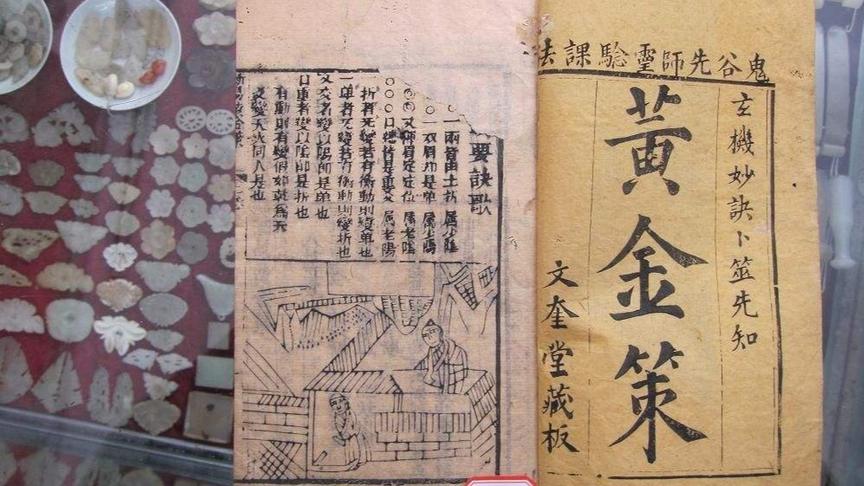 鬼谷先師靈驗課法
玄機妙訣卜筮先知
黃金策
文奎堂藏板
要訣歌
一兩背由土折 屬少陰
双眉却是单 屬少陽
○○ 屬老陰
○○○口總皆是重爻 屬老陽
折者不變若有衝動則變单也
一单者不變若有衝動則變折也
又交者變以陽即是单也
口重者變以陰即是折也
有動則有變假如乾為天
變天火同人是也